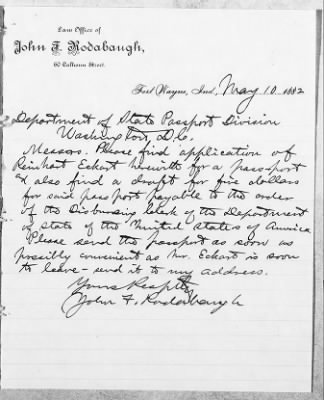 Law Office of
John F. Rodabaugh,
60 Calhoun Street.
Fort Wayne, Ind., May 10 1882
Department of State Passport Division
Washington, D.C.
Messrs. Please find application of
Reinhart Eckart herewith for a passport
& also find a draft for five dollars
for said passport payable to the order
of the Disbursing clerk of the Department
of State of the United States of America
Please send the passport as soon as
possibly convenient as Mr. Eckart is soon
to leave - send it to my address.
Yours Respttly
John F. Rodabaugh